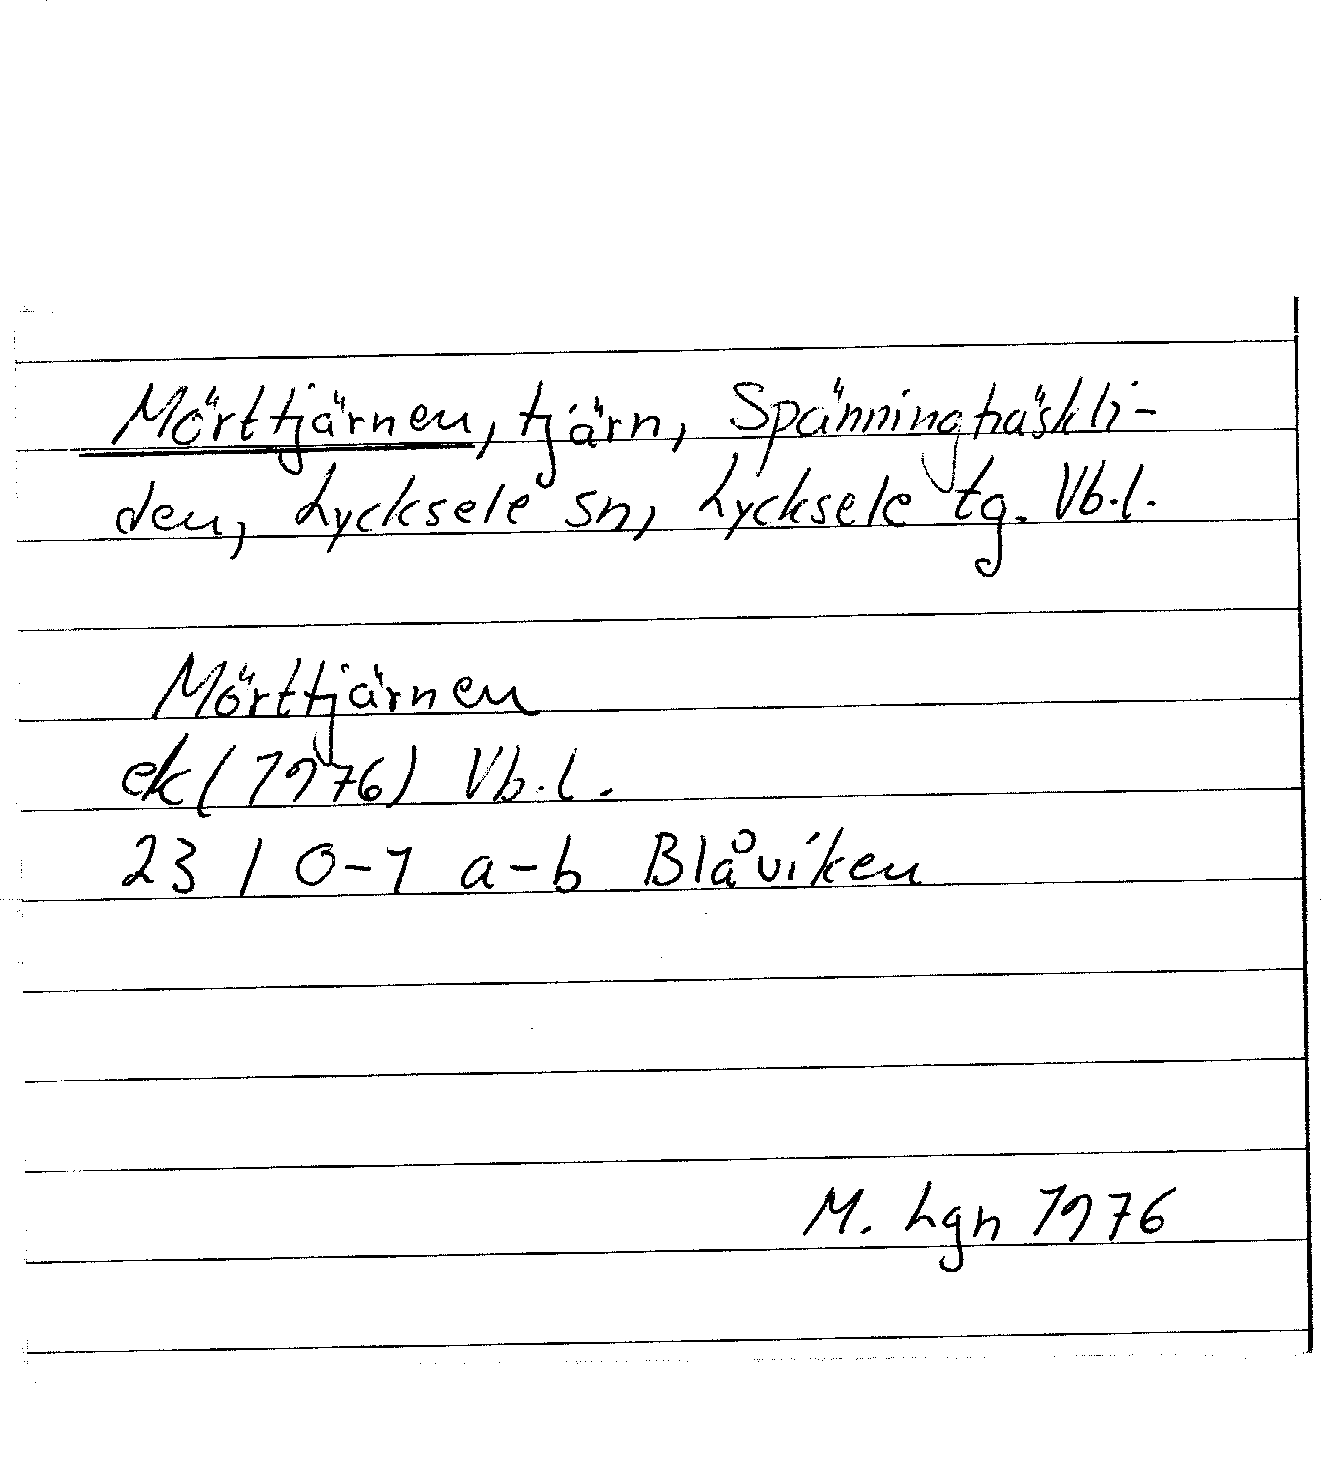 Mörttjärnen, tjärn, Spänningträskli-
den, Lycksele sn, Lycksele tg. Vb.l.
Mörttjärnen
ek (1976) Vb.l.
23 I 0-1 a-b Blåviken
M. Lgn 1976